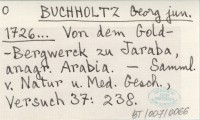 O
BUCHHOLTZ Georg jun.
1726... Von dem Gold-
-Bergwerck zu Jaraba,
anagr. Arabia. — Samml.
v. Natur u. Med. Gesch.,
Versuch 37: 238.
BT/007/0066